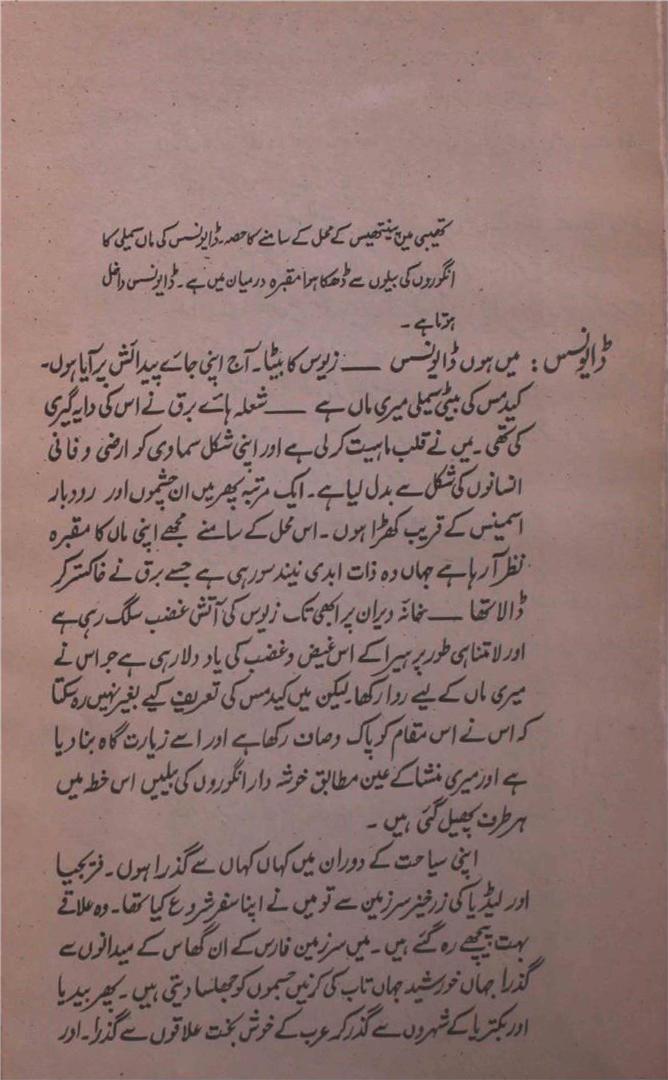 تھیبی میں پینتھیس کے محل کے سامنے کا حصہ۔ ڈایونس کی ماں سمیلی کا
انگوروں کی بیلوں سے ڈھکا ہوا مقبرہ درمیان میں ہے۔ ڈایونس داخل
ہوتا ہے۔
ڈایونس: میں ہوں ڈایونس ــــ زیوس کا بیٹا۔ آج اپنی جائے پیدائش پر آیا ہوں۔
کیڈمس کی بیٹی سمیلی میری ماں ہے ــــ شعلہ ہائے برق نے اس کی دایہ گیری
کی تھی۔ میں نے قلب ماہیت کر لی ہے اور اپنی شکل سماوی کو ارضی و فانی
انسانوں کی شکل سے بدل لیا ہے۔ ایک مرتبہ پھر میں ان چشموں اور رودبار
اسمینس کے قریب کھڑا ہوں۔ اس محل کے سامنے مجھے اپنی ماں کا مقبرہ
نظر آ رہا ہے جہاں وہ ذات ابدی نیند سو رہی ہے جسے برق نے خاکستر کر
ڈالا تھا ــــ خانۂ ویران پر ابھی تک زیوس کی آتش غضب سلگ رہی ہے
اور لا متناہی طور پر ہیرا کے اس غیض و غضب کی یاد دلا رہی ہے جو اس نے
میری ماں کے لیے روا رکھا۔ لیکن میں کیڈمس کی تعریف کیے بغیر نہیں رہ سکتا
کہ اس نے اس مقام کو پاک و صاف رکھا ہے اور اسے زیارت گاہ بنا دیا
ہے اور میری منشا کے عین مطابق خوشہ دار انگوروں کی بیلیں اس خطہ میں
ہر طرف پھیل گئی ہیں۔
اپنی سیاحت کے دوران میں کہاں کہاں سے گذرا ہوں۔ فریجیا
اور لیڈیا کی زرخیز سرزمین سے تو میں نے اپنا سفر شروع کیا تھا۔ وہ علاقے
بہت پیچھے رہ گئے ہیں۔ میں سرزمین فارس کے ان گھاس کے میدانوں سے
گذرا جہاں خورشید جہاں تاب کی کرنیں جسموں کو جھلسا دیتی ہیں۔ پھر میدیا
اور بکٹریا کے شہروں سے گذر کر عرب کے خوش بخت علاقوں سے گذرا۔ اور